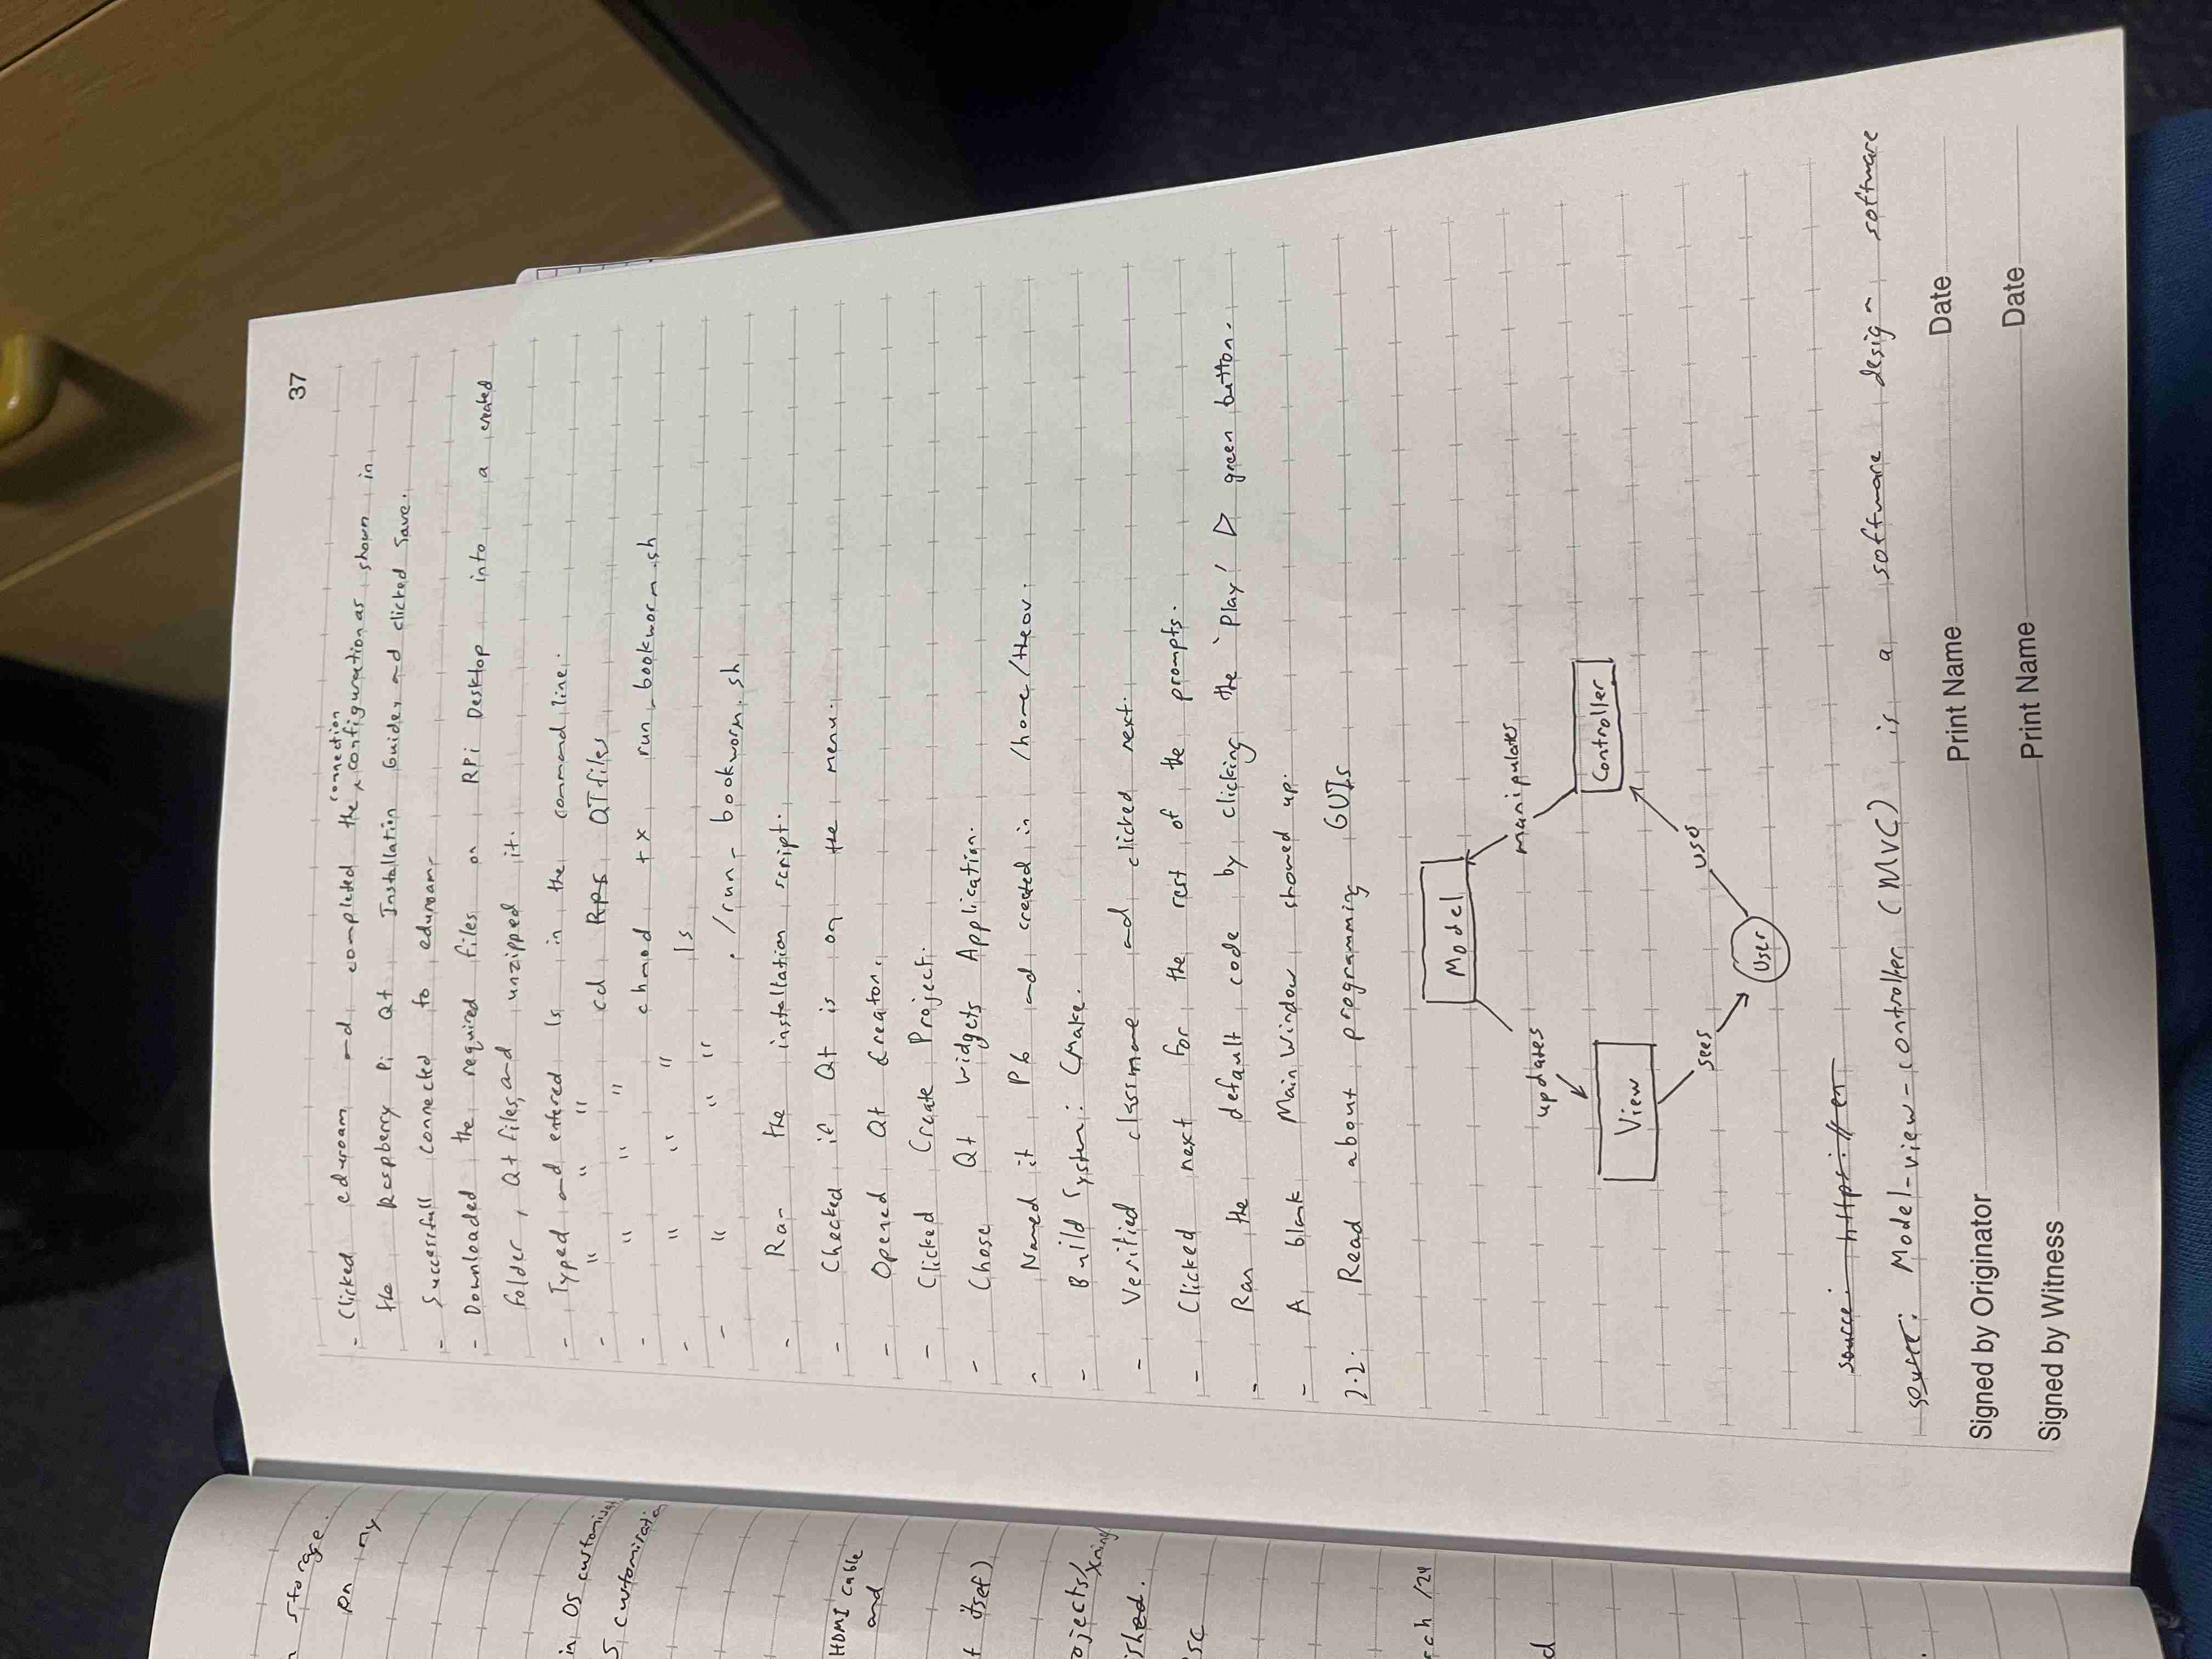 n storage.
on my
in OS customisat
S customisatio
HDMI cable
and
ojects/xming
shed.
sc
rch /24
d
37
connection
- Clicked eduroam and completed the ^ configuration as shown in
the Raspberry Pi Qt Installation Guide, and clicked Save.
- Successfull connected to eduroam.
- Downloaded the required files on RPi Desktop into a created
folder, Qt files, and unzipped it.
- Typed and entered ls in the command line.
- " " " cd RPS QTfiles
- " " " chmod +x run_bookworm.sh
- " " " ls
- " " " ./run_bookworm.sh
- Ran the installation script.
- Checked if Qt is on the menu.
- Opened Qt Creator.
- Clicked Create Project.
- Chose Qt Widgets Application.
- Named it P6 and created in /home/theov.
- Build System: CMake.
- Verified classname and clicked next.
- Clicked next for the rest of the prompts.
- Ran the default code by clicking the 'Play' ▷ green button.
- A blank MainWindow showed up.
2.2. Read about programming GUIs
Model
updates
manipulates
View
Controller
sees
uses
User
source: https://en
source: Model-view-controller (MVC) is a software design software
Signed by Originator Print Name Date
Signed by Witness Print Name Date